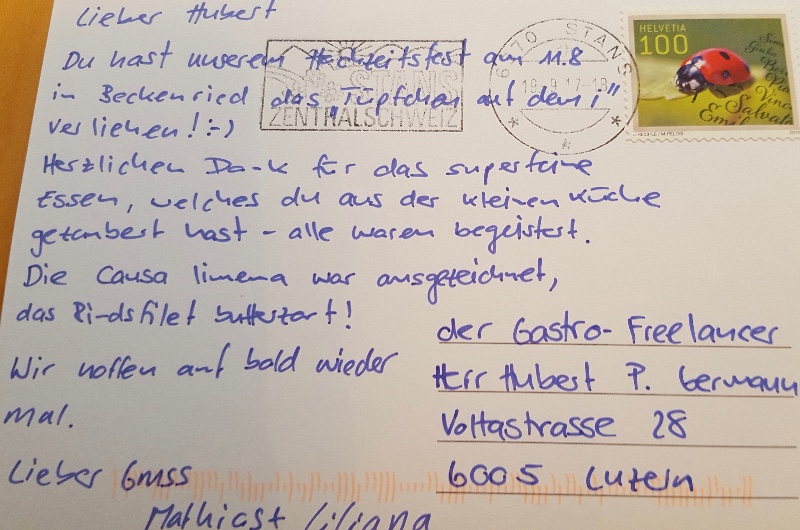 Lieber Hubert
Du hast unserem Hochzeitsfest am 11.8
in Beckenried das "Tüpfchen auf dem i"
verliehen! :-)
Herzlichen Dank für das superfeine
Essen, welches du aus der kleinen Küche
gezaubert hast - alle waren begeistert.
Die Causa limena war ausgezeichnet,
das Rindsfilet butterzart!
Wir hoffen auf bald wieder
mal.
Lieber Gruss
Mathias + Liliana
der Gastro-Freelancer
Herr Hubert P. Germann
Voltastrasse 28
6005 Luzern
STANS
ZENTRALSCHWEIZ
6370 STANS
HELVETIA
100
Salvat
Emil